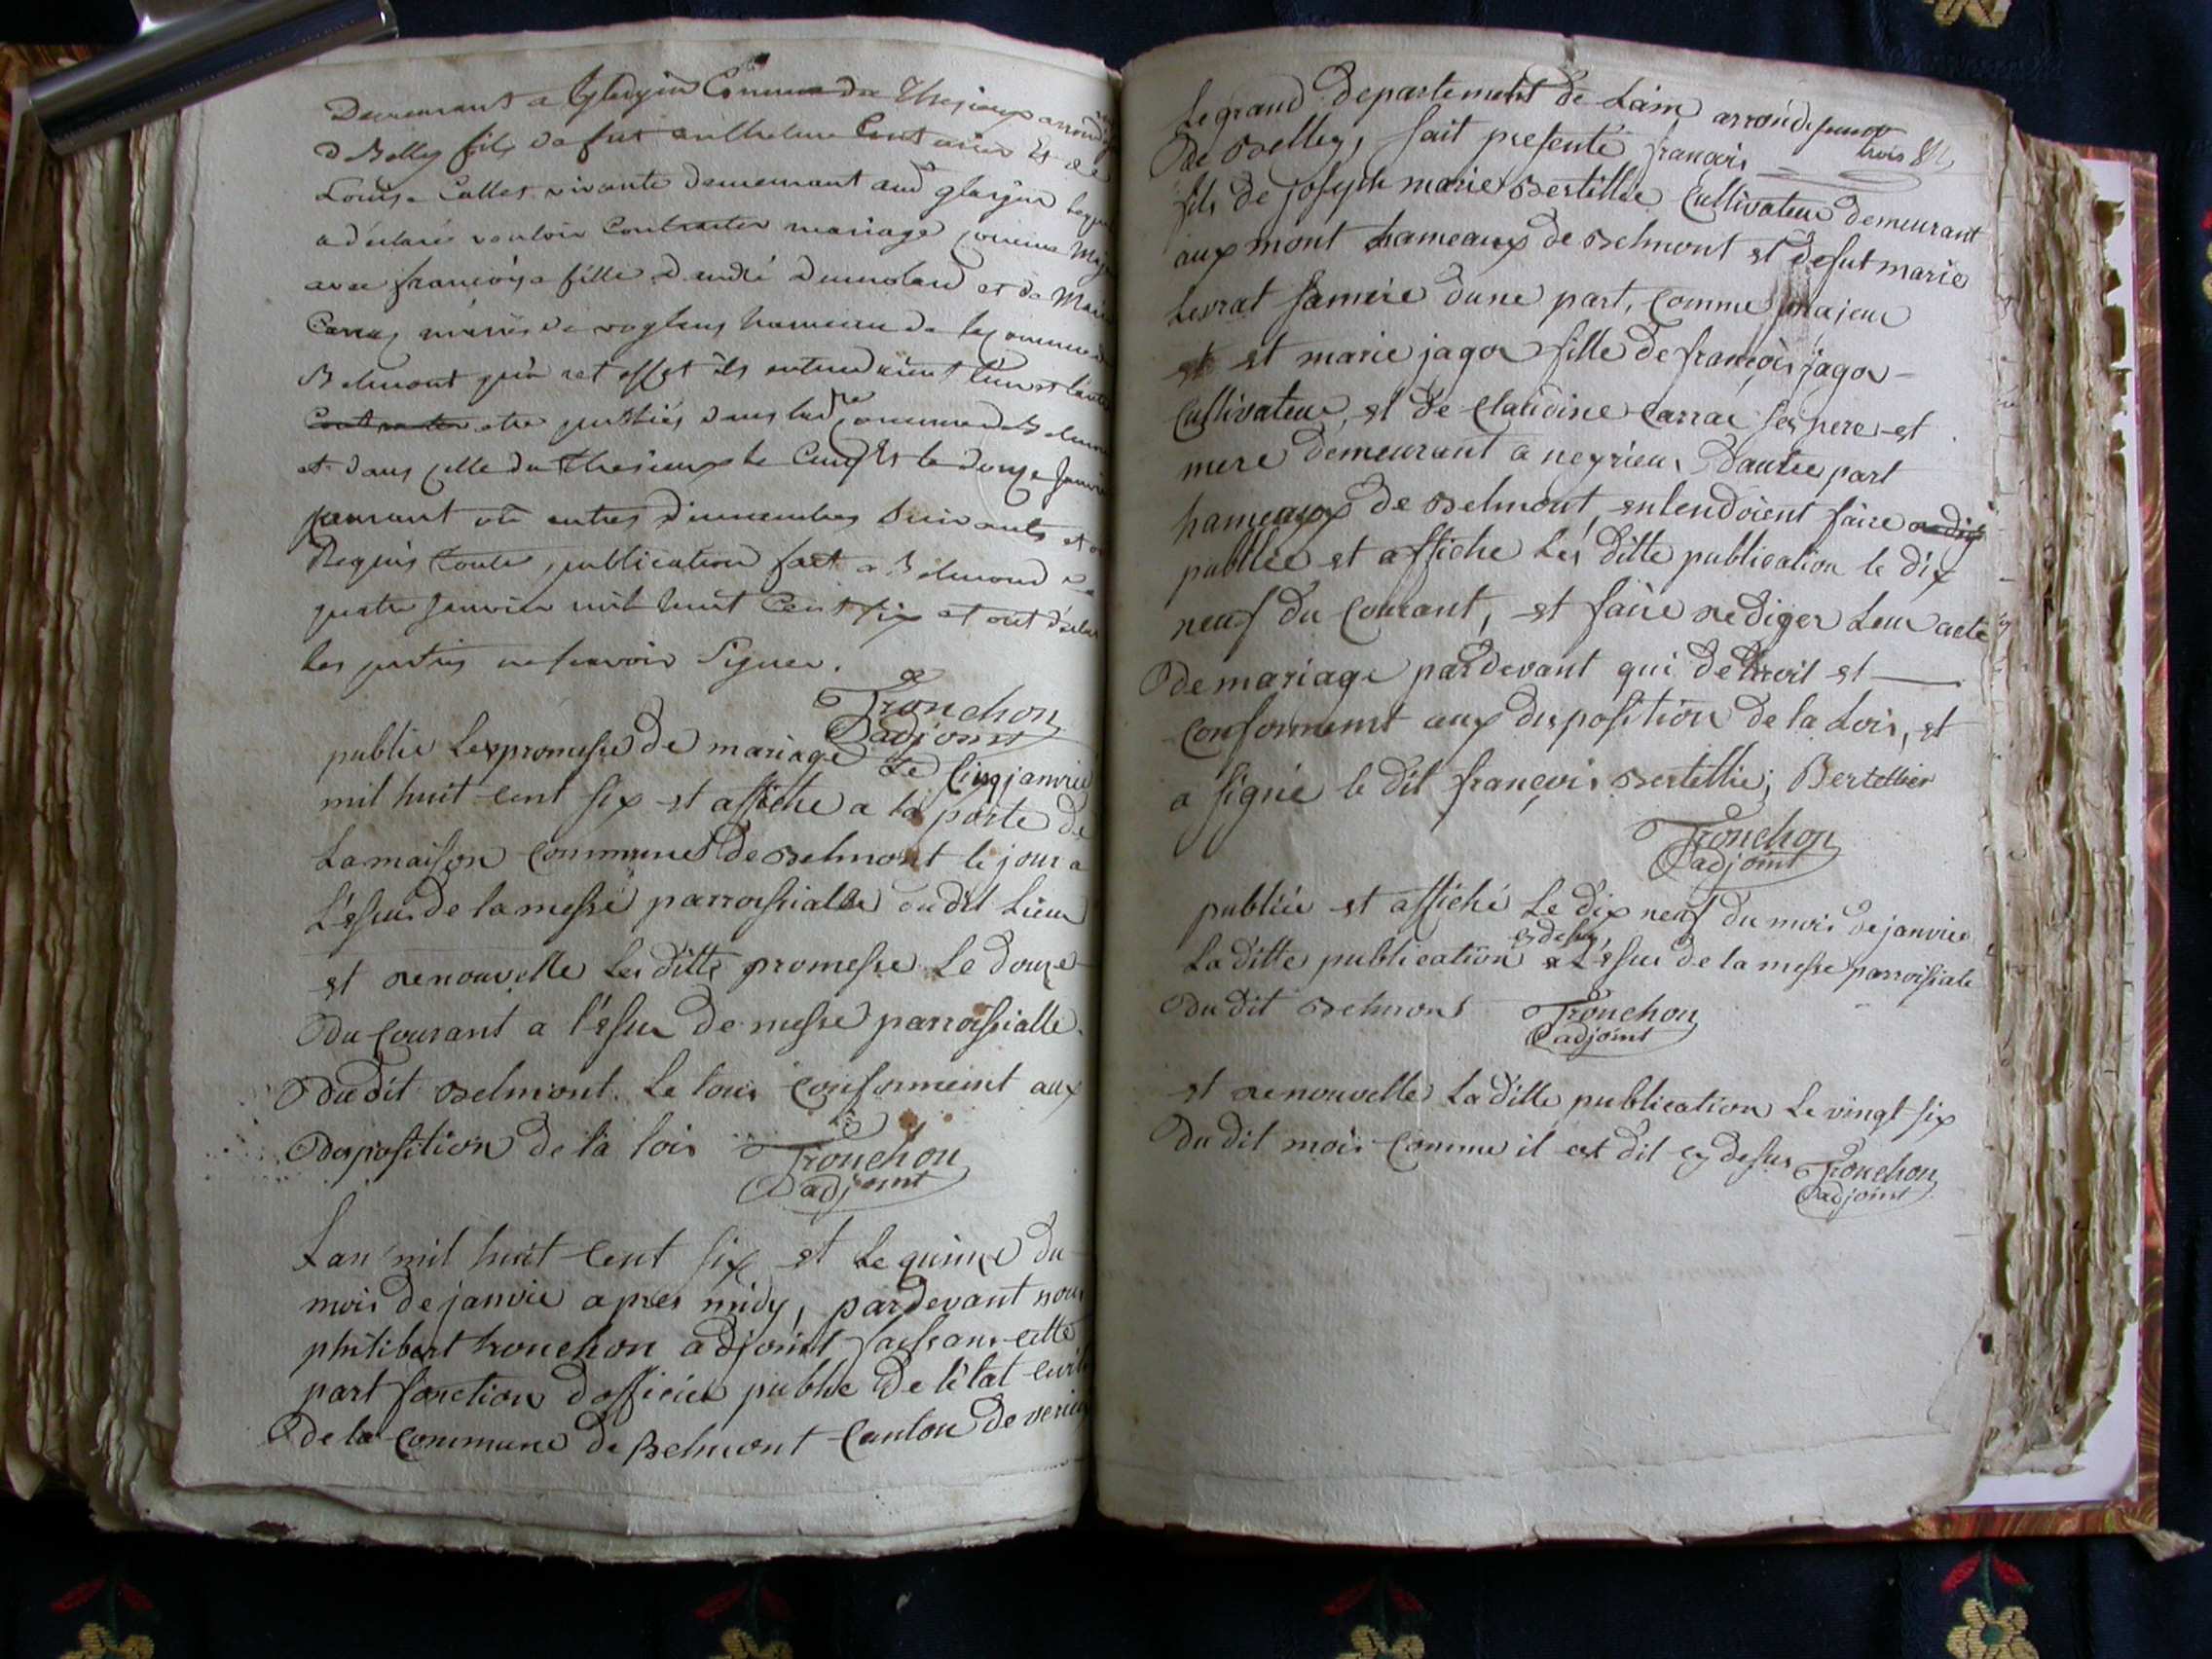 Demeurant a Commune de Thesieux arrond
d Belley fils de fut anthelme et de
Louise Callet vivante demeurant aud glargin
a déclaré vouloir Contracter mariage comme Maj
avec françoise fille d'andré dumolard et de Marie
Carra mariés de voglans hameau de la commune
Belmont qu'a cet effet ils entendaient l'un et l'autre
etre publiés dans lad.e commune de Belmon
et dans celle de thesieux le Cinq Et le douze Janvi
courant où autres dimanches Suivants et
Requis toute publication fait a Belmond
quatre Janvier mil huit Cent six et ont déclar
les parties ne scavoir Signer.
Tronchon
adjoint
publie Les promesse de mariage Le Cinq janvier
mil huit cent six et affiche a la porte de
La maison commune de Belmont le jour a
L'essue de la messe parroissialle du dit Lieu
et renouvelle Les ditte promesse Le douze
du Courant a l'essue de messe parroissialle
du dit Belmont. Le tous conformemt aux
disposition de la lois Tronchon
adjoint
Lan mil huit cent six et Le quinze du
mois de janvie apres midy, pardevant nous
philibert tronchon adjoint faissans cette
part fonction dofficier public de l'état civil
de la commune de Belmont canton de virieu
Le grand departement de Lain arrondissemt
de Belley, sait presenté françois trois
fils de joseph marie Bertillie Cultivateur demeurant
aux mont hameaux de Belmont et defut marie
Levrat sa mere dune part, comme majeur
et marie jagou fille de françois jagou
Cultivateur, et de Claudine Carrac ses pere et
mere demeurant a neyrieu dautre part
hameaux de Belmont, entendoient faire redig
publiée et affiche Les ditte publication le dix
neuf du courant, et faire rediger Leur acte
de mariage pardevant qui de droit et
conformemt aux disposition de la Lois, et
a signé le dit françois Bertellie; Bertellier
Tronchon
adjoint
publiée et affiché Le dix neuf du mois de janvier
cy dessus,
La ditte publication a L'essue de la messe parroissiale
du dit Belmont Tronchon
adjoint
et renouvelle La ditte publication Le vingt six
du dit mois comme il est dit cy dessus Tronchon
adjoint